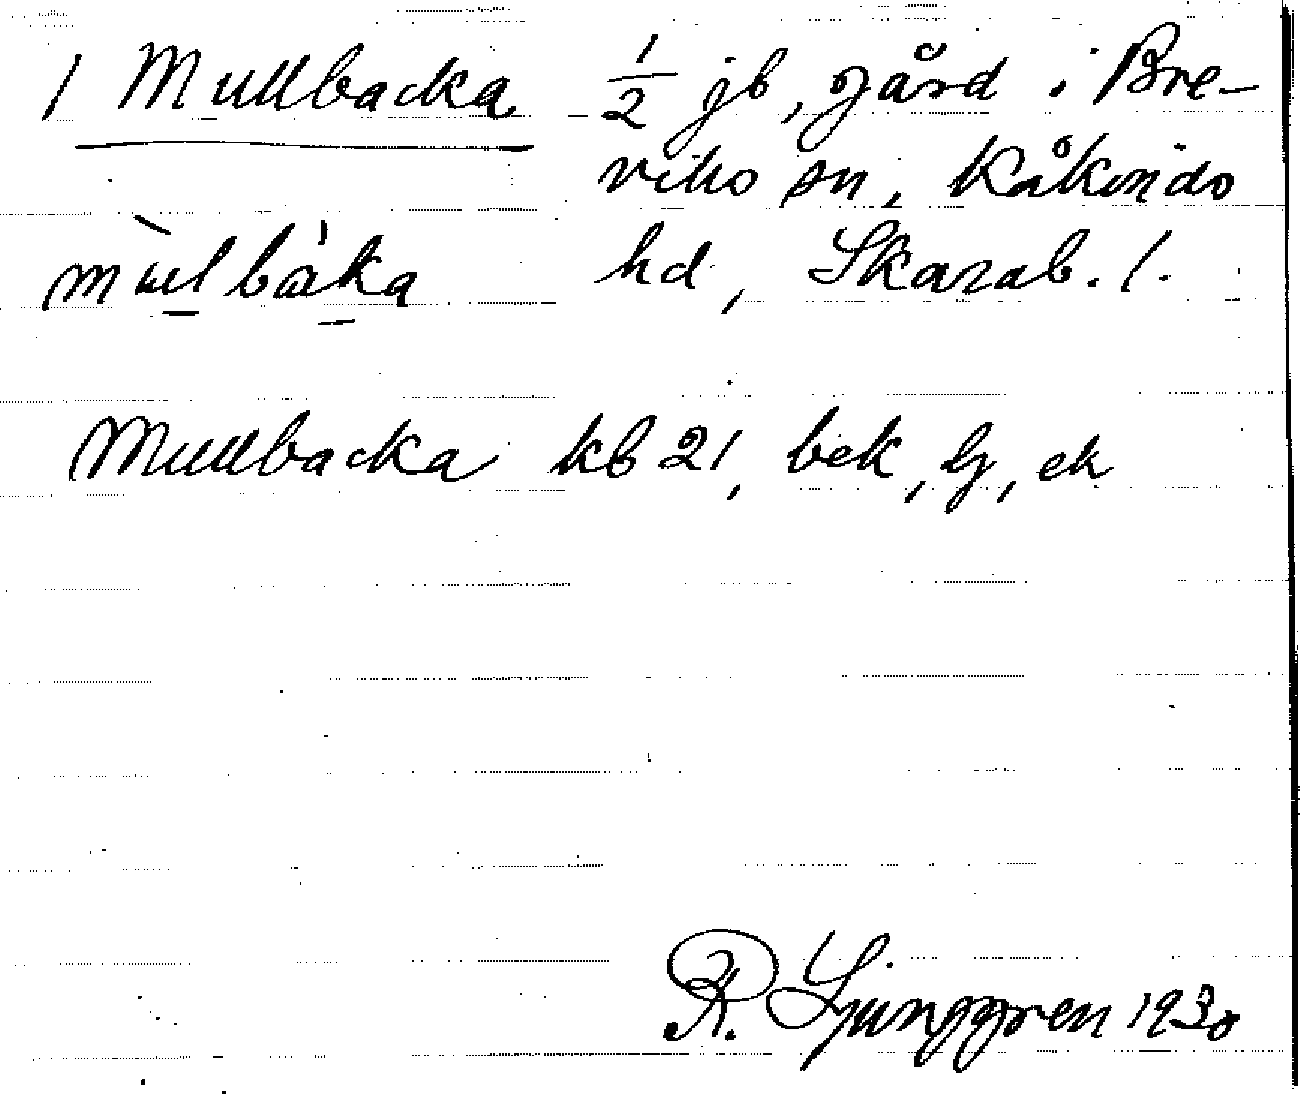 1 Mullbacka 1/2 jb, gård i Bre-
viks sn, Kåkinds
mùlbàka hd, Skarab. l.
Mullbacka kb 21, bek, lj, ek
R. Ljunggren 1930